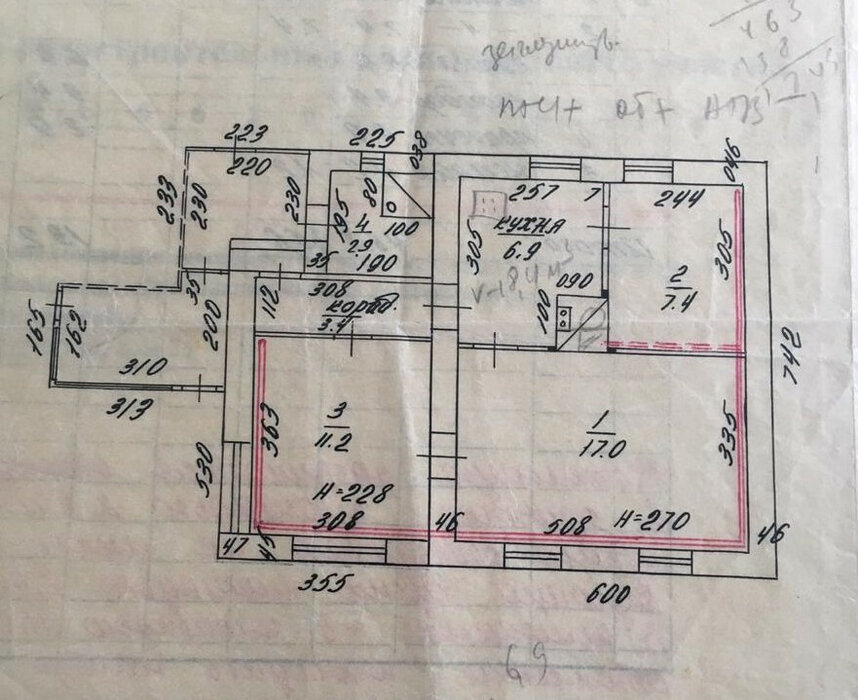 223
225
038
220
046
233
230
230
195
80
4
2.9
100
35
190
257
7
кухня
6.9
305
244
305
2
7.4
090
100
35
200
112
308
корид.
3.4
165
162
310
313
742
363
3
11.2
1
17.0
335
530
H=228
308
46
508
H=270
46
47
45
355
600
69